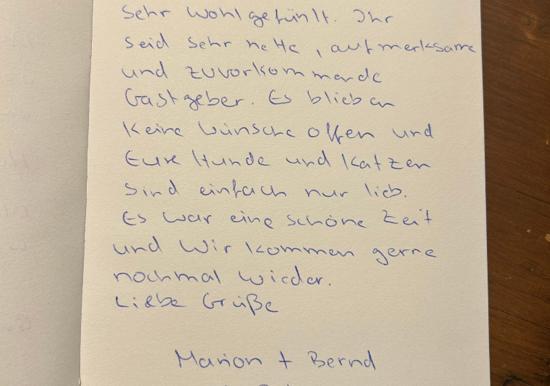 sehr wohl gefühlt. Ihr
seid sehr nette, aufmerksame
und zuvorkommende
Gastgeber. Es blieben
keine Wünsche offen und
Eure Hunde und Katzen
sind einfach nur lieb.
Es war eine schöne Zeit
und wir kommen gerne
nochmal wieder.
Liebe Grüße
Marion + Bernd